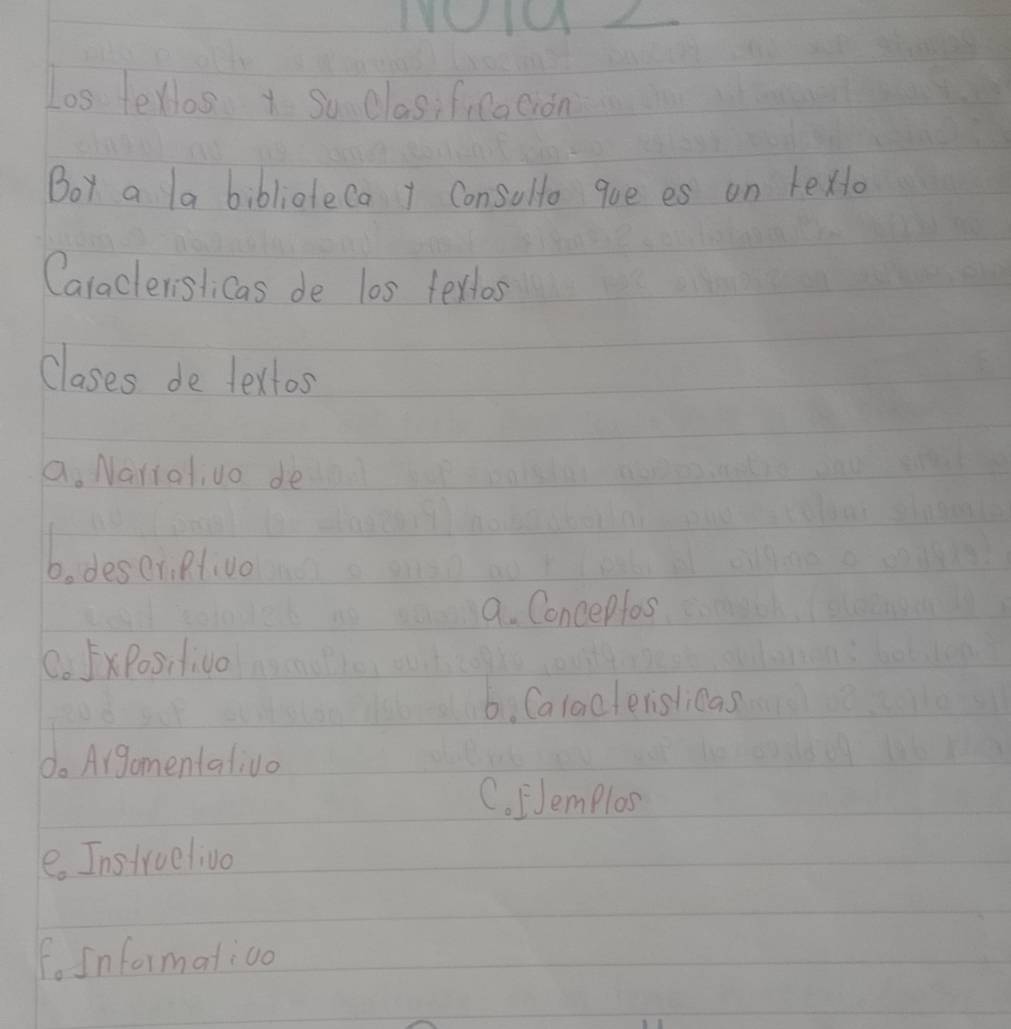 Nota 2
Los textos y su clasificación
Boy a la biblioteca y consulto que es un texto
Caracteristicas de los textos
Clases de textos
a. Narrativo de
b. descriptivo
a. Conceptos
c. Expositivo
b. Caracteristicas
d. Argomentativo
C. Ejemplos
e. Instructivo
f. Informativo